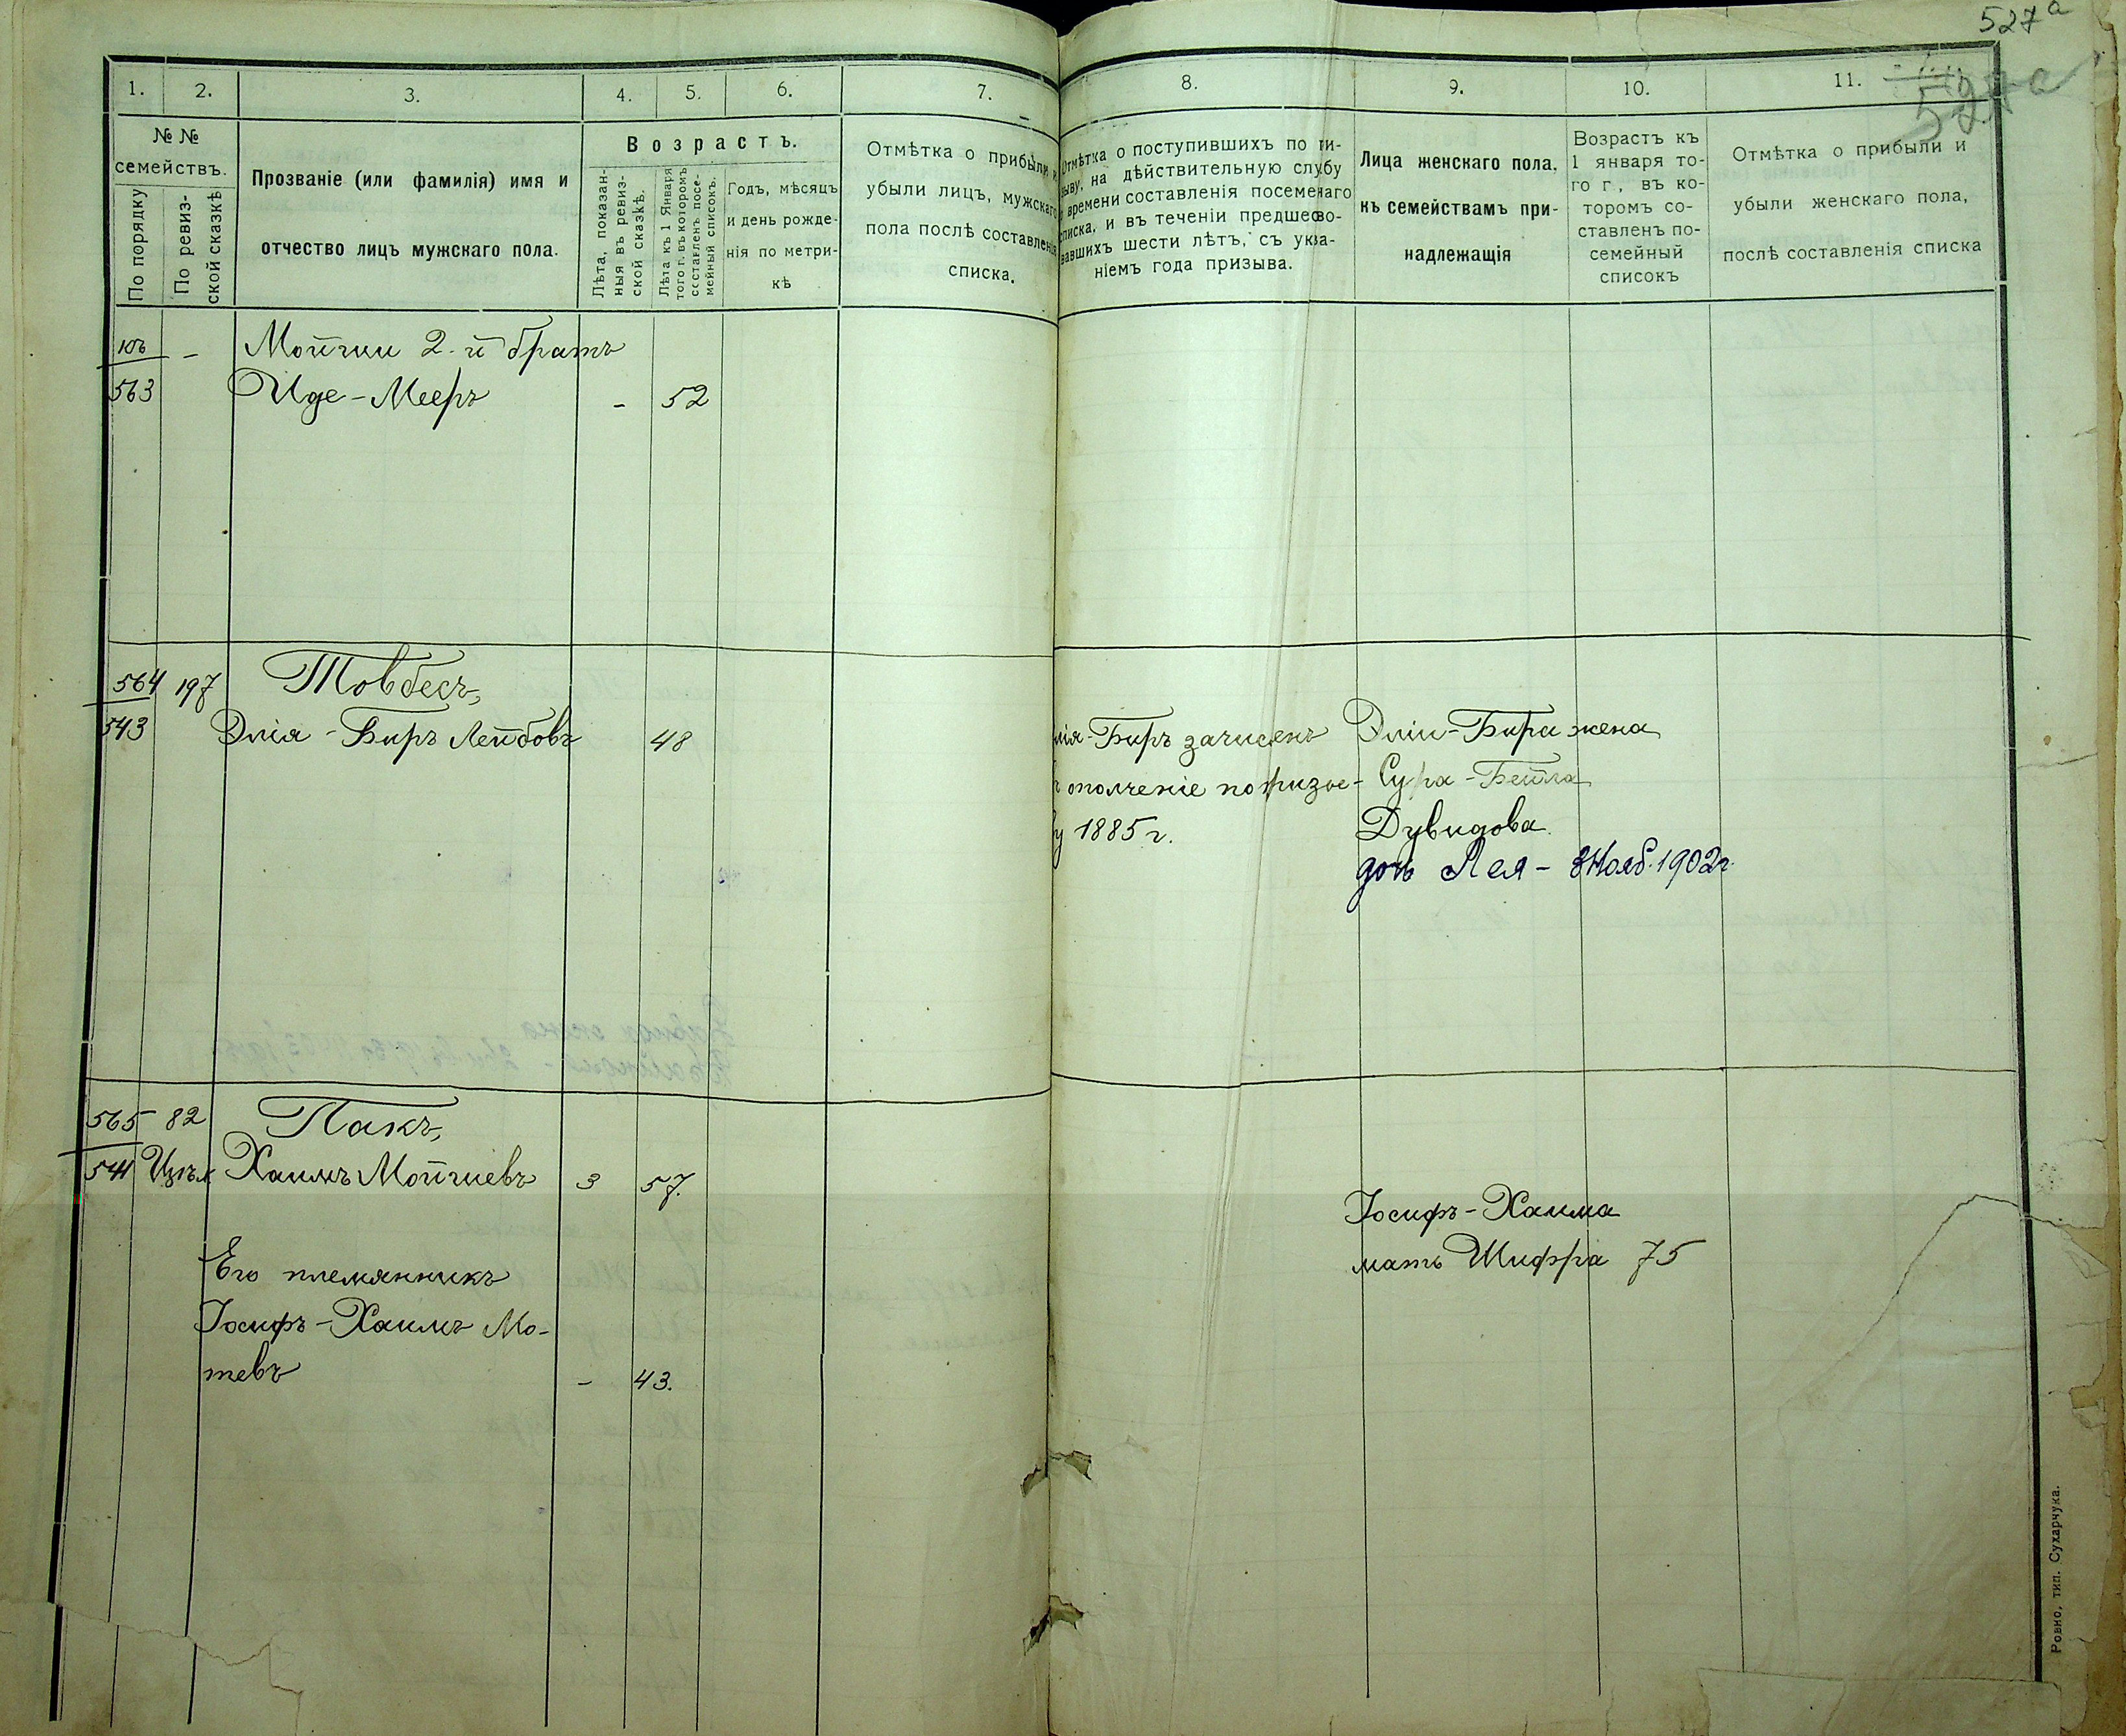 527 а
1. 2. 3. 4. 5. 6. 7. 8. 9. 10. 11.
№ №
семействъ.
По порядку
По ревиз-
ской сказкѣ
Прозваніе (или фамилія) имя и
отчество лицъ мужскаго пола.
Возрастъ.
Лѣта, показан-
ныя въ ревиз-
ской сказкѣ.
Лѣта къ 1 Января
того г. въ которомъ
составленъ посе-
мейный списокъ.
Годъ, мѣсяцъ
и день рожде-
нія по метри-
кѣ
Отмѣтка о прибыли и
убыли лицъ, мужскаго
пола послѣ составленія
списка.
Отмѣтка о поступившихъ по ри-
зыву, на дѣйствительную службу
времени составленія посемейнаго
списка, и въ теченіи предшество-
вавшихъ шести лѣтъ, съ указа-
ніемъ года призыва.
Лица женскаго пола,
къ семействамъ при-
надлежащія
Возрастъ къ
1 января то-
го г., въ ко-
торомъ со-
ставленъ по-
семейный
списокъ
Отмѣтка о прибыли и
убыли женскаго пола,
послѣ составленія списка
къ - Мойшки 2-й братъ
563 Иде-Мееръ - 52
564 197 Товбесъ,
543 Элія-Биръ Лейбовъ 48
лія-Биръ зачисленъ
ополченіе по призы-
у 1885 г.
Эліи-Бира жена
Сура-Бейла
Дувидова
дочь Лея - 8 Нояб. 1902 г.
565 82 Пакъ,
541 Хаимъ Мойшіевъ 3 57.
Его племянникъ
Іосифъ-Хаимъ Мо-
тевъ - 43.
Іосифъ-Хаима
мать Шифра 75
Ровно, тип. Сухарчука.